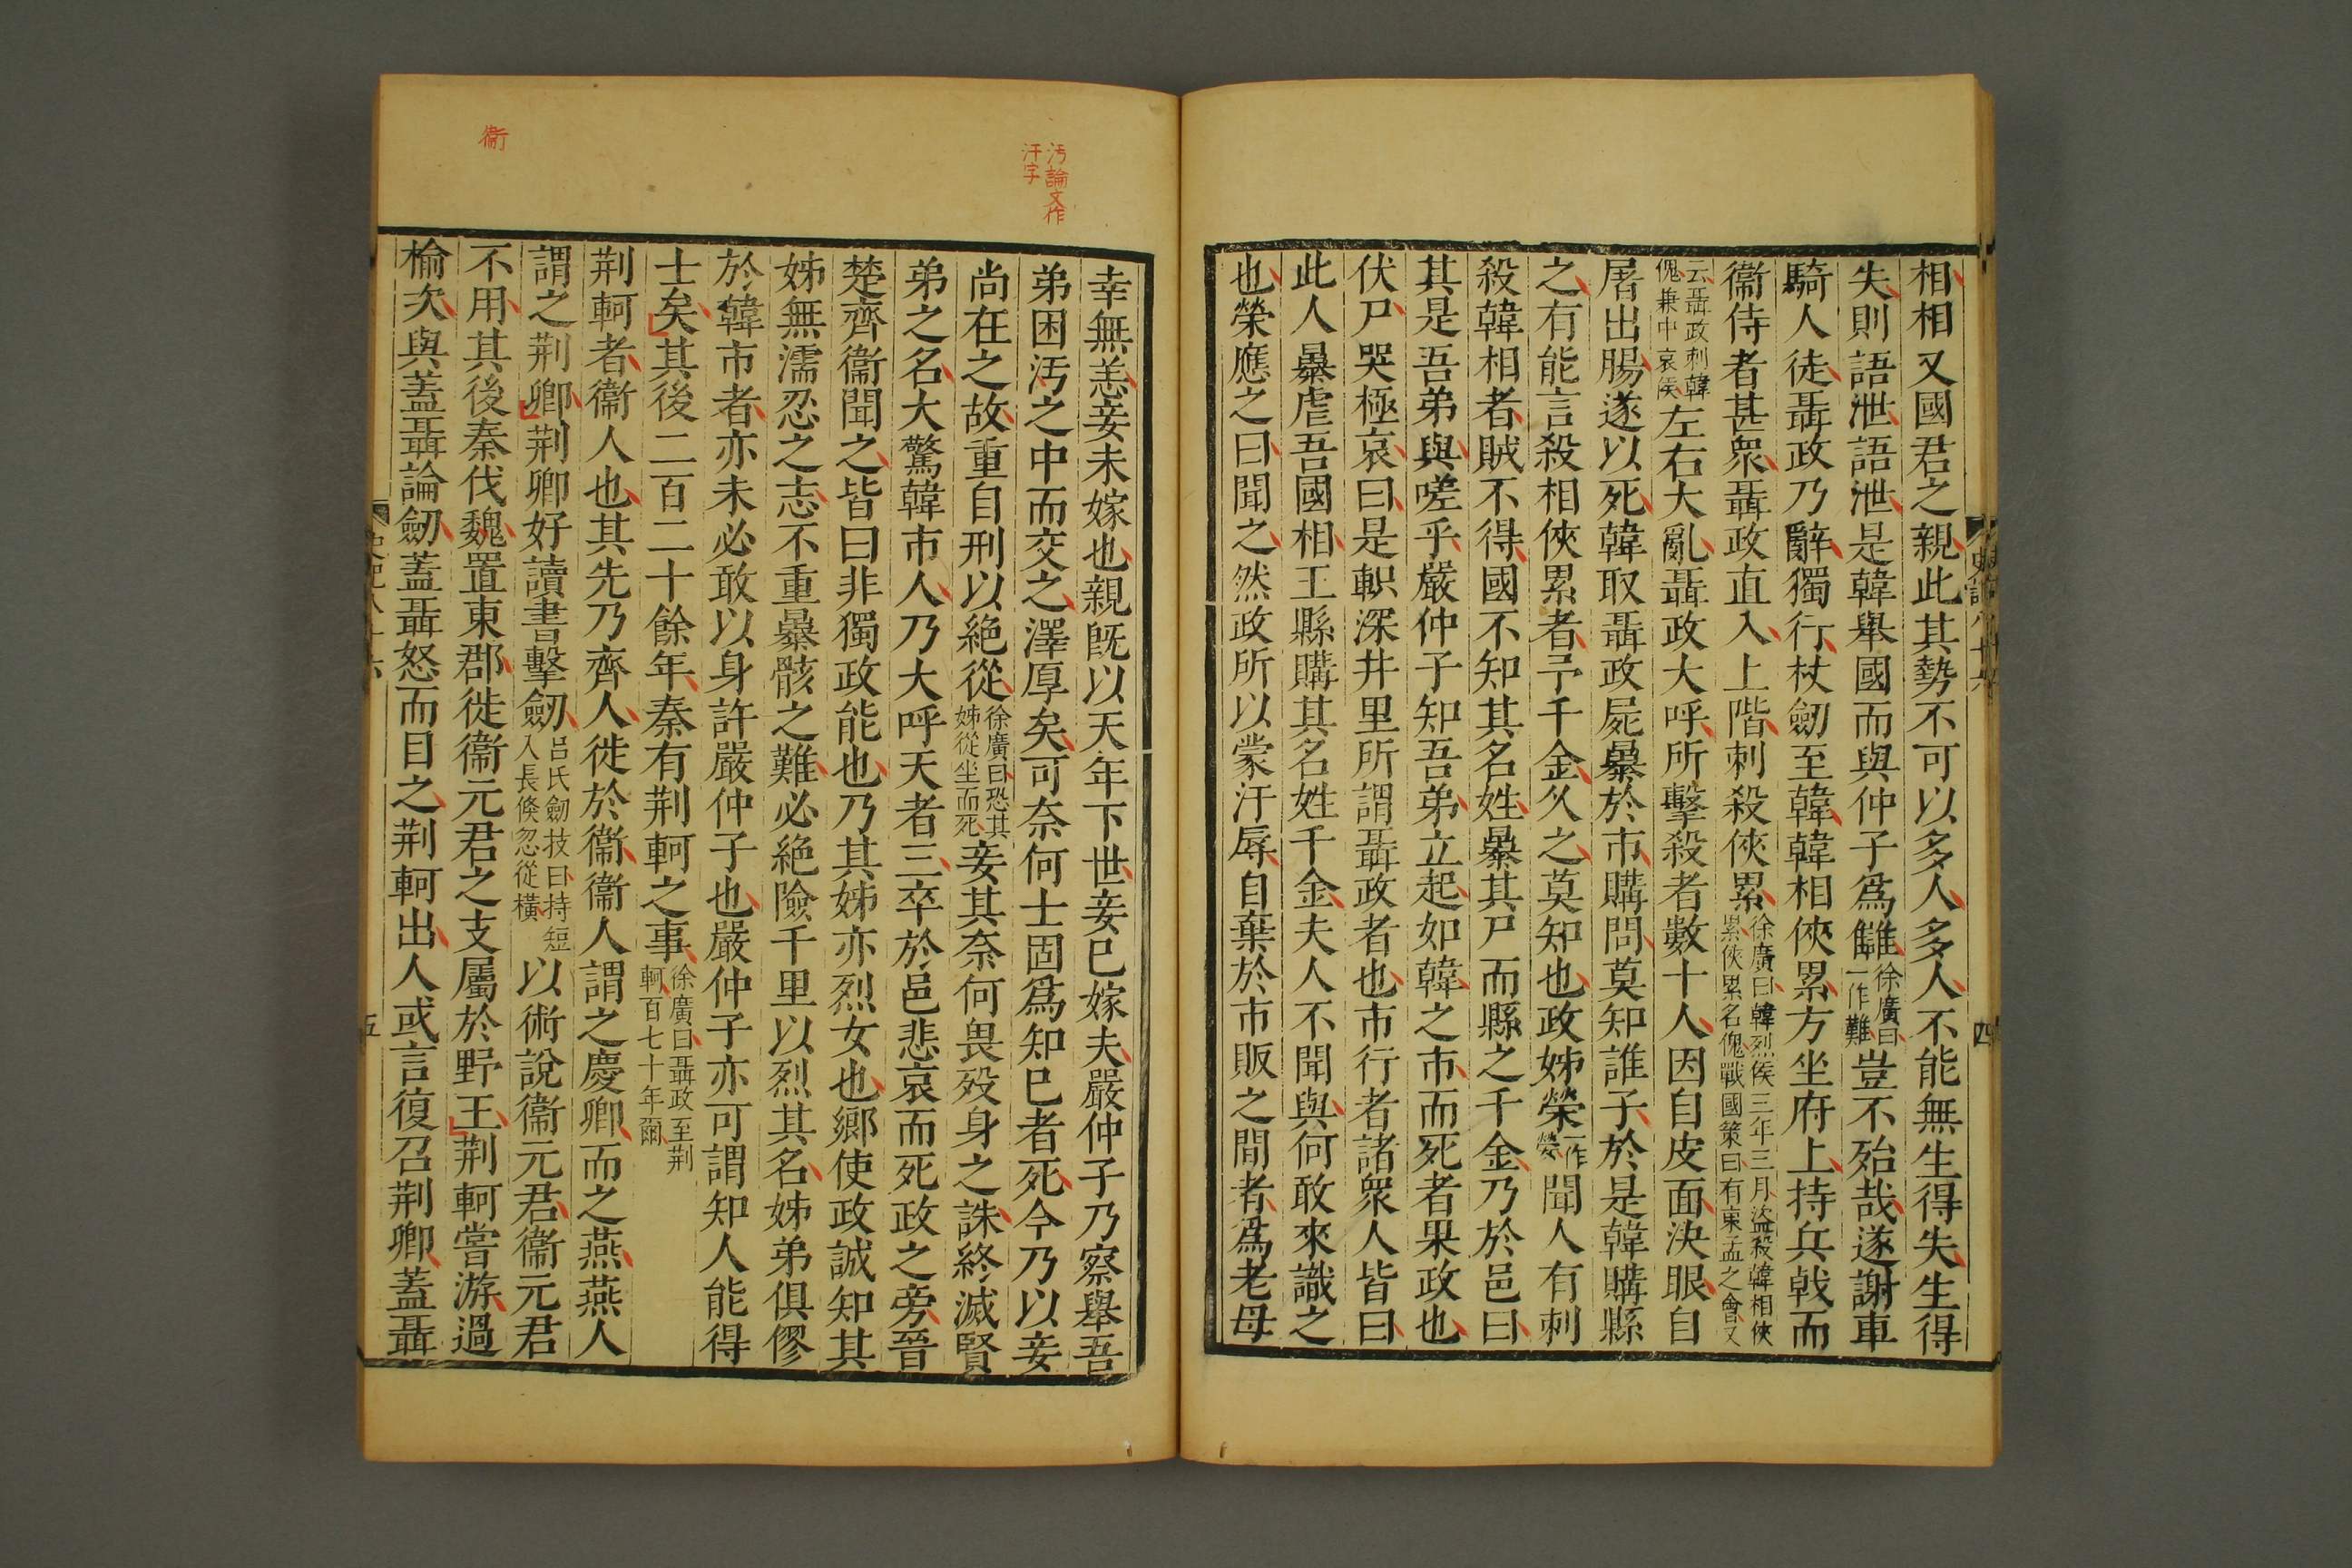 相相又國君之親此其勢不可以多人多人不能無生得失生得
失則語泄語泄是韓舉國而與仲子爲讎徐廣曰一作難豈不殆哉遂謝車
騎人徒聶政乃辭獨行杖劒至韓韓相俠累方坐府上持兵戟而
衞侍者甚衆聶政直入上階刺殺俠累徐廣曰韓烈侯三年三月盜殺韓相俠累俠累名傀戰國策曰有東孟之會又
云聶政刺韓傀兼中哀侯左右大亂聶政大呼所擊殺者數十人因自皮面決眼自
屠出腸遂以死韓取聶政屍暴於市購問莫知誰子於是韓購縣
之有能言殺相俠累者予千金久之莫知也政姊榮一作嫈聞人有刺
殺韓相者賊不得國不知其名姓暴其尸而縣之千金乃於邑曰
其是吾弟與嗟乎嚴仲子知吾弟立起如韓之市而死者果政也
伏尸哭極哀曰是軹深井里所謂聶政者也市行者諸衆人皆曰
此人暴虐吾國相王縣購其名姓千金夫人不聞與何敢來識之
也榮應之曰聞之然政所以蒙汙辱自棄於市販之閒者爲老母
史記八十六
四
汚論文作
汗字
幸無恙妾未嫁也親旣以天年下世妾已嫁夫嚴仲子乃察舉吾
弟困汚之中而交之澤厚矣可奈何士固爲知已者死今乃以妾
尚在之故重自刑以絕從徐廣曰恐其姊從坐而死妾其奈何畏歿身之誅終滅賢
弟之名大驚韓市人乃大呼天者三卒於邑悲哀而死政之旁晉
楚齊衞聞之皆曰非獨政能也乃其姊亦烈女也鄉使政誠知其
姊無濡忍之志不重暴骸之難必絕險千里以烈其名姊弟俱僇
於韓市者亦未必敢以身許嚴仲子也嚴仲子亦可謂知人能得
士矣其後二百二十餘年秦有荆軻之事徐廣曰聶政至荆軻百七十年爾
荆軻者衞人也其先乃齊人徙於衞衞人謂之慶卿而之燕燕人
謂之荆卿荆卿好讀書擊劒呂氏劒技曰持短入長倏忽從橫以術說衞元君衞元君
不用其後秦伐魏置東郡徙衞元君之支屬於野王荆軻嘗游過
榆次與蓋聶論劒蓋聶怒而目之荆軻出人或言復召荆卿蓋聶
衞
史記八十六
五